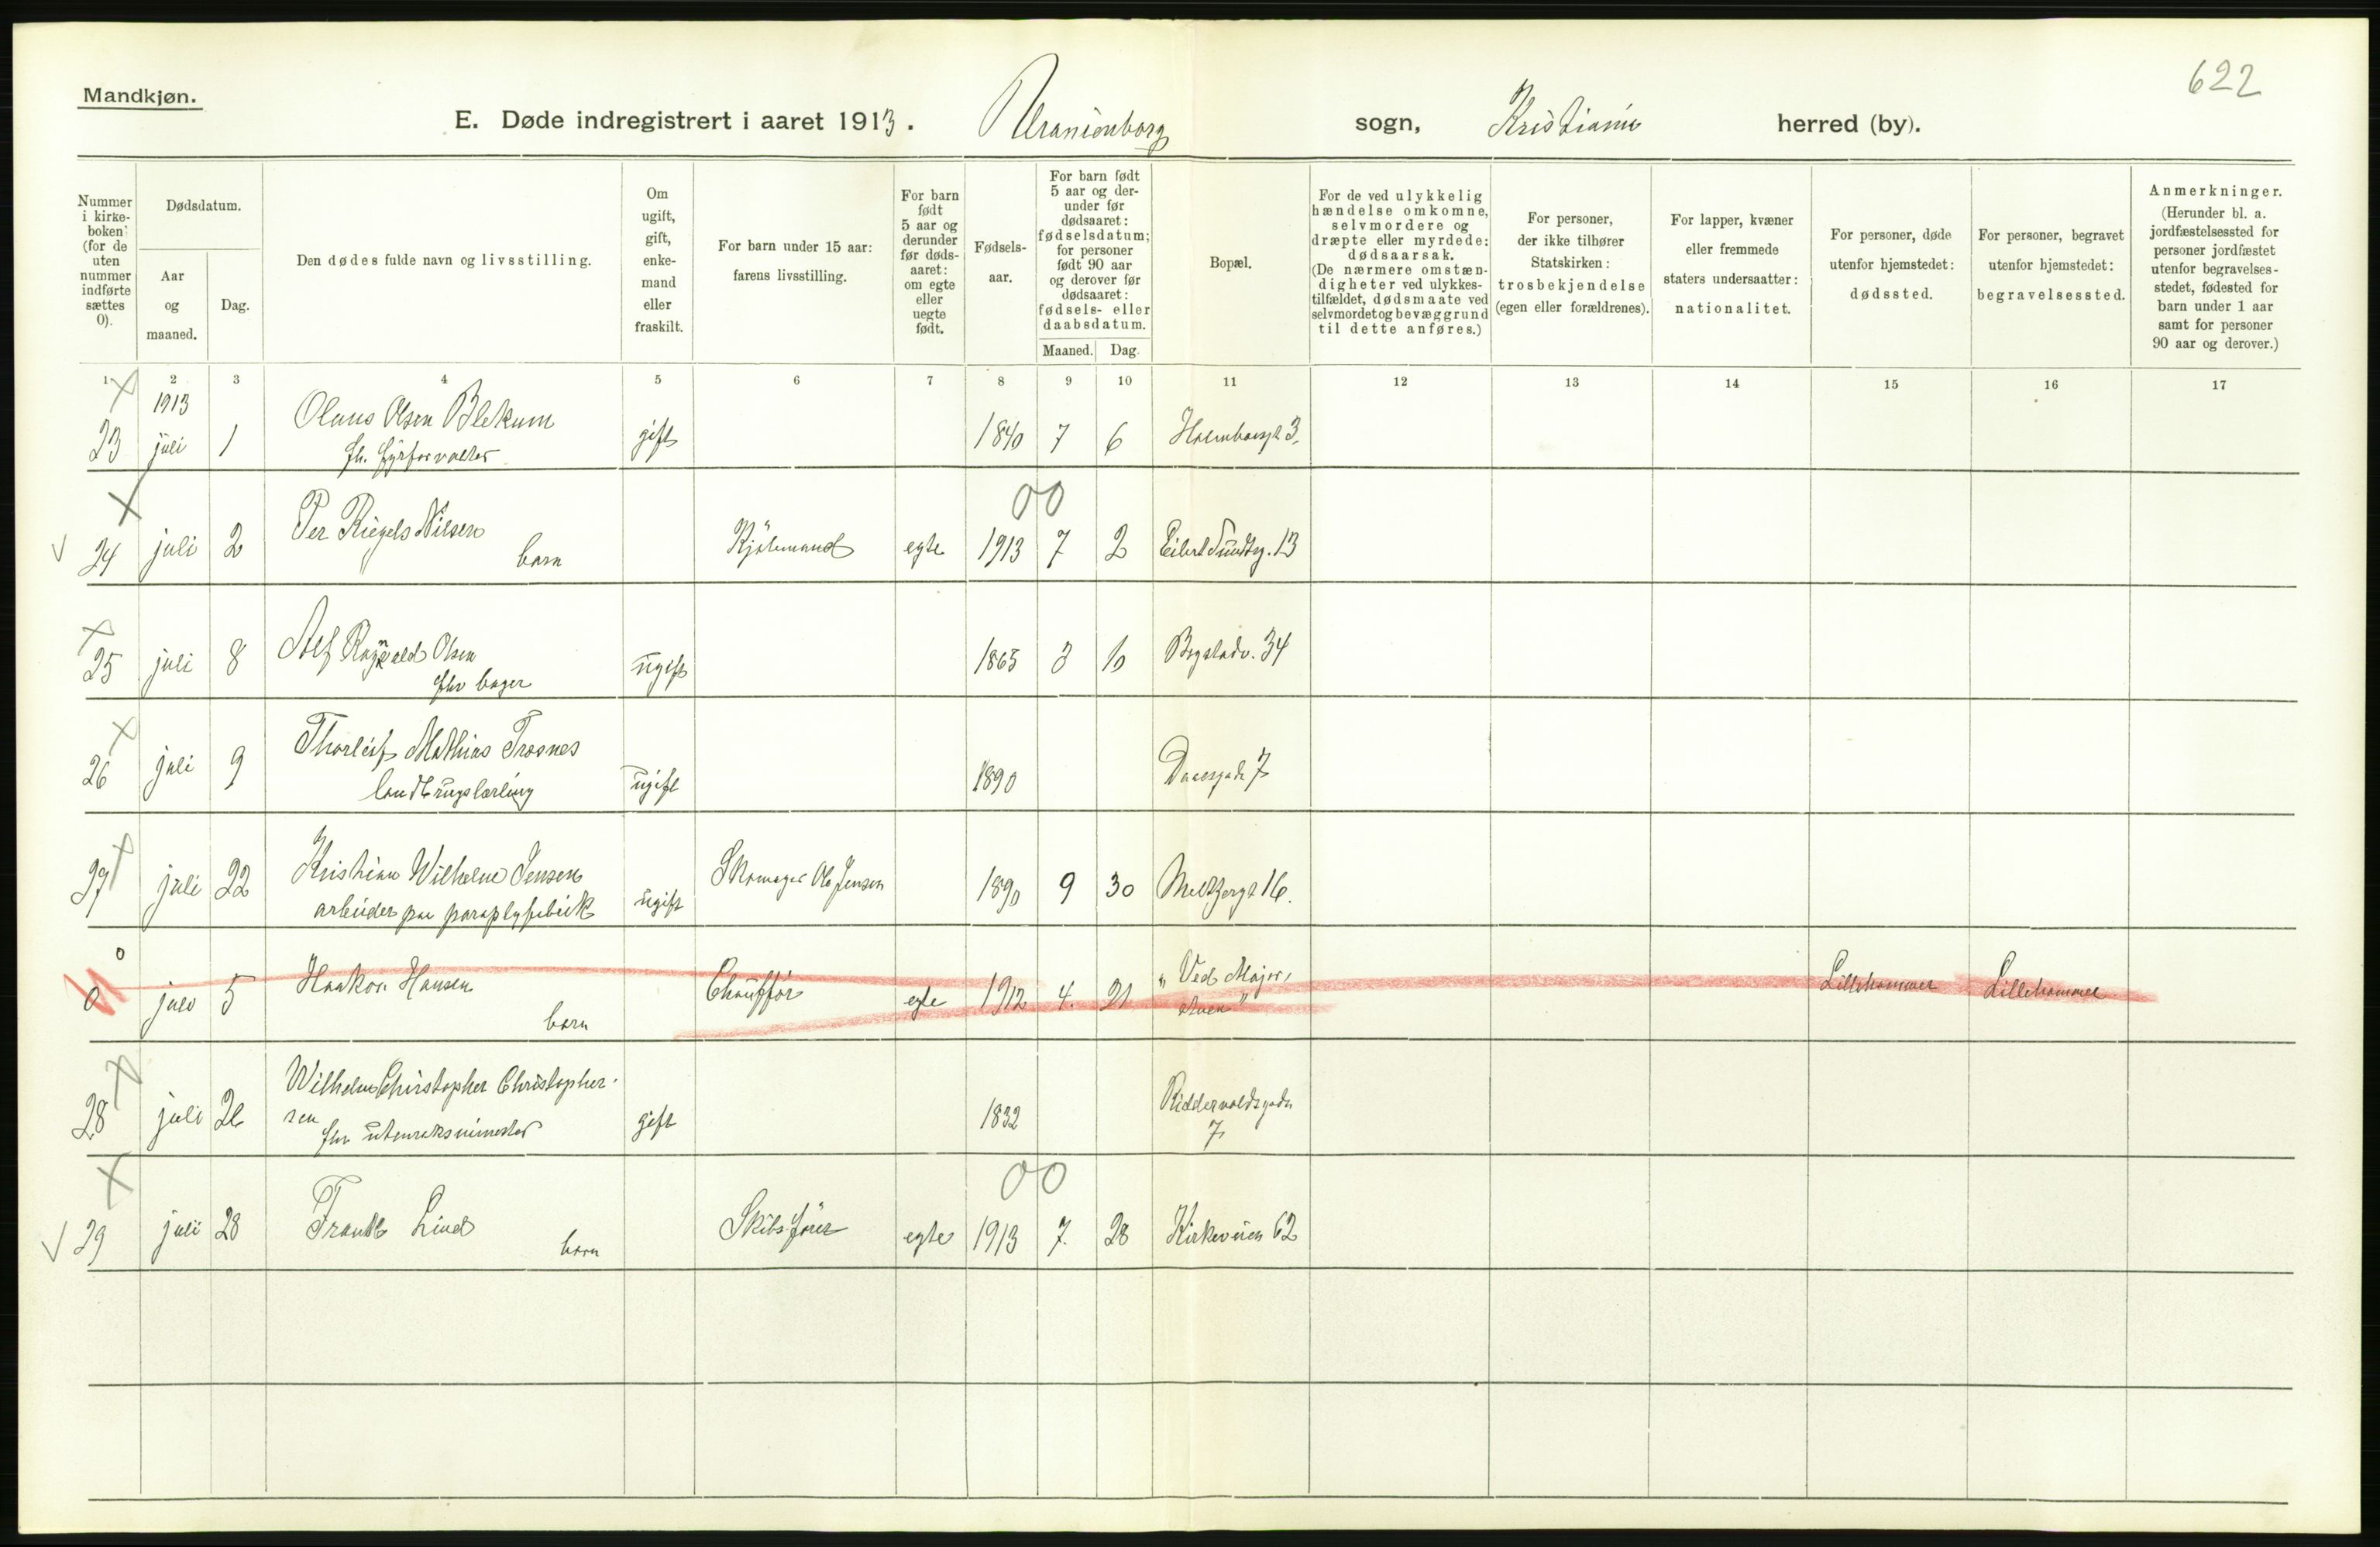 622
Mandkjøn.
E. Døde indregistrert i aaret 1913. Uranienborg sogn, Kristiania herred (by).
Nummer i kirkeboken (for de uten nummer indførte sættes 0).
Dødsdatum.
Aar og maaned.
Dag.
Den dødes fulde navn og livsstilling.
Om ugift, gift, enkemand eller fraskilt.
For barn under 15 aar: farens livsstilling.
For barn født 5 aar og derunder før dødsaaret: om egte eller uegte født.
Fødselsaar.
For barn født 5 aar og derunder før dødsaaret: fødselsdatum; for personer født 90 aar og derover før dødsaaret: fødsels- eller daabsdatum.
Maaned. Dag.
Bopæl.
For de ved ulykkelig hændelse omkomne, selvmordere og dræpte eller myrdede: dødsaarsak. (De nærmere omstændigheter ved ulykkestilfældet, dødsmaate ved selvmordet og bevæggrund til dette anføres.)
For personer, der ikke tilhører Statskirken: trosbekjendelse (egen eller forældrenes).
For lapper, kvæner eller fremmede staters undersaatter: nationalitet.
For personer, døde utenfor hjemstedet: dødssted.
For personer, begravet utenfor hjemstedet: begravelsessted.
Anmerkninger. (Herunder bl. a. jordfæstelsessted for personer jordfæstet utenfor begravelsesstedet, fødested for barn under 1 aar samt for personer 90 aar og derover.)
1 2 3 4 5 6 7 8 9 10 11 12 13 14 15 16 17
1913
23 juli 1 Olaus Olsen Blekum gift 1840 7 6 3.
fh. fyrforvalter
00
24 juli 2 Per Riegels Nilsen barn Kjölmand egte 1913 7 2 Eilert Sundtsg. 13
25 juli 8 Alf Ragnvald Olsen ugift 1865 3 10 Bogstadv. 34
fhv bager
26 juli 9 Thorleif Mathias Trosnes ugift 1890 Daasgade 7
landbrugslærling
27 juli 22 Kristian Wilhelm Jensen ugift Skomager Ole Jensen 1890 9 30 Meltzersgt 16.
arbeider paa paraplyfabrik
0 0 juli 5 Haakon Hansen barn Chauffør egte 1912 4. 21 "Ved Majorstuen" Lillehammer Lillehammer
28 juli 26 Wilhelm Christopher Christophersen gift 1832 Riddervoldsgade 7
fhv utenriksminister
00
29 juli 28 Frantz Lind barn Skibsfører egte 1913 7. 28 Kirkeveien 62